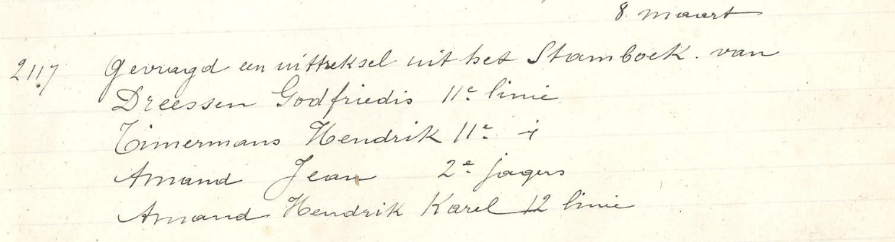 8 maart
2117 Gevraagd een uittreksel uit het Stamboek van
Dreessen Godfriedis 11e linie
Timermans Hendrik 11e i
Amand Jean 2e jagers
Amand Hendrik Karel 12 linie